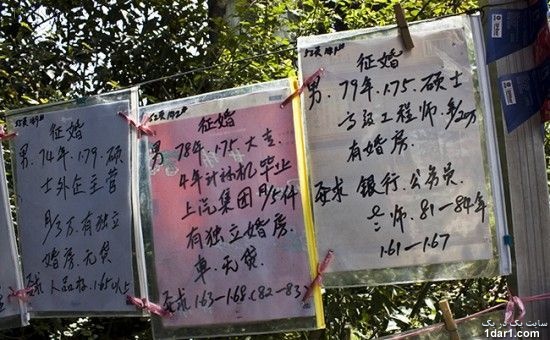 征婚
男.74年.1.79.硕
士外企主管
月/3万.有独立
婚房.无贷
要求 人品好.1.65以上
征婚
男 78年.1.75.大专
4年计补机毕业
上汽集团 月/5仟
有独立婚房
車.无贷.
要求 1.63-1.68(82-83)
征婚
男.79年.1.75.硕士
高级工程师.月/2万
有婚房.
要求 银行.公务员.
老师.81-84年
1.61-1.67
سایت یک در یک
1dar1.com